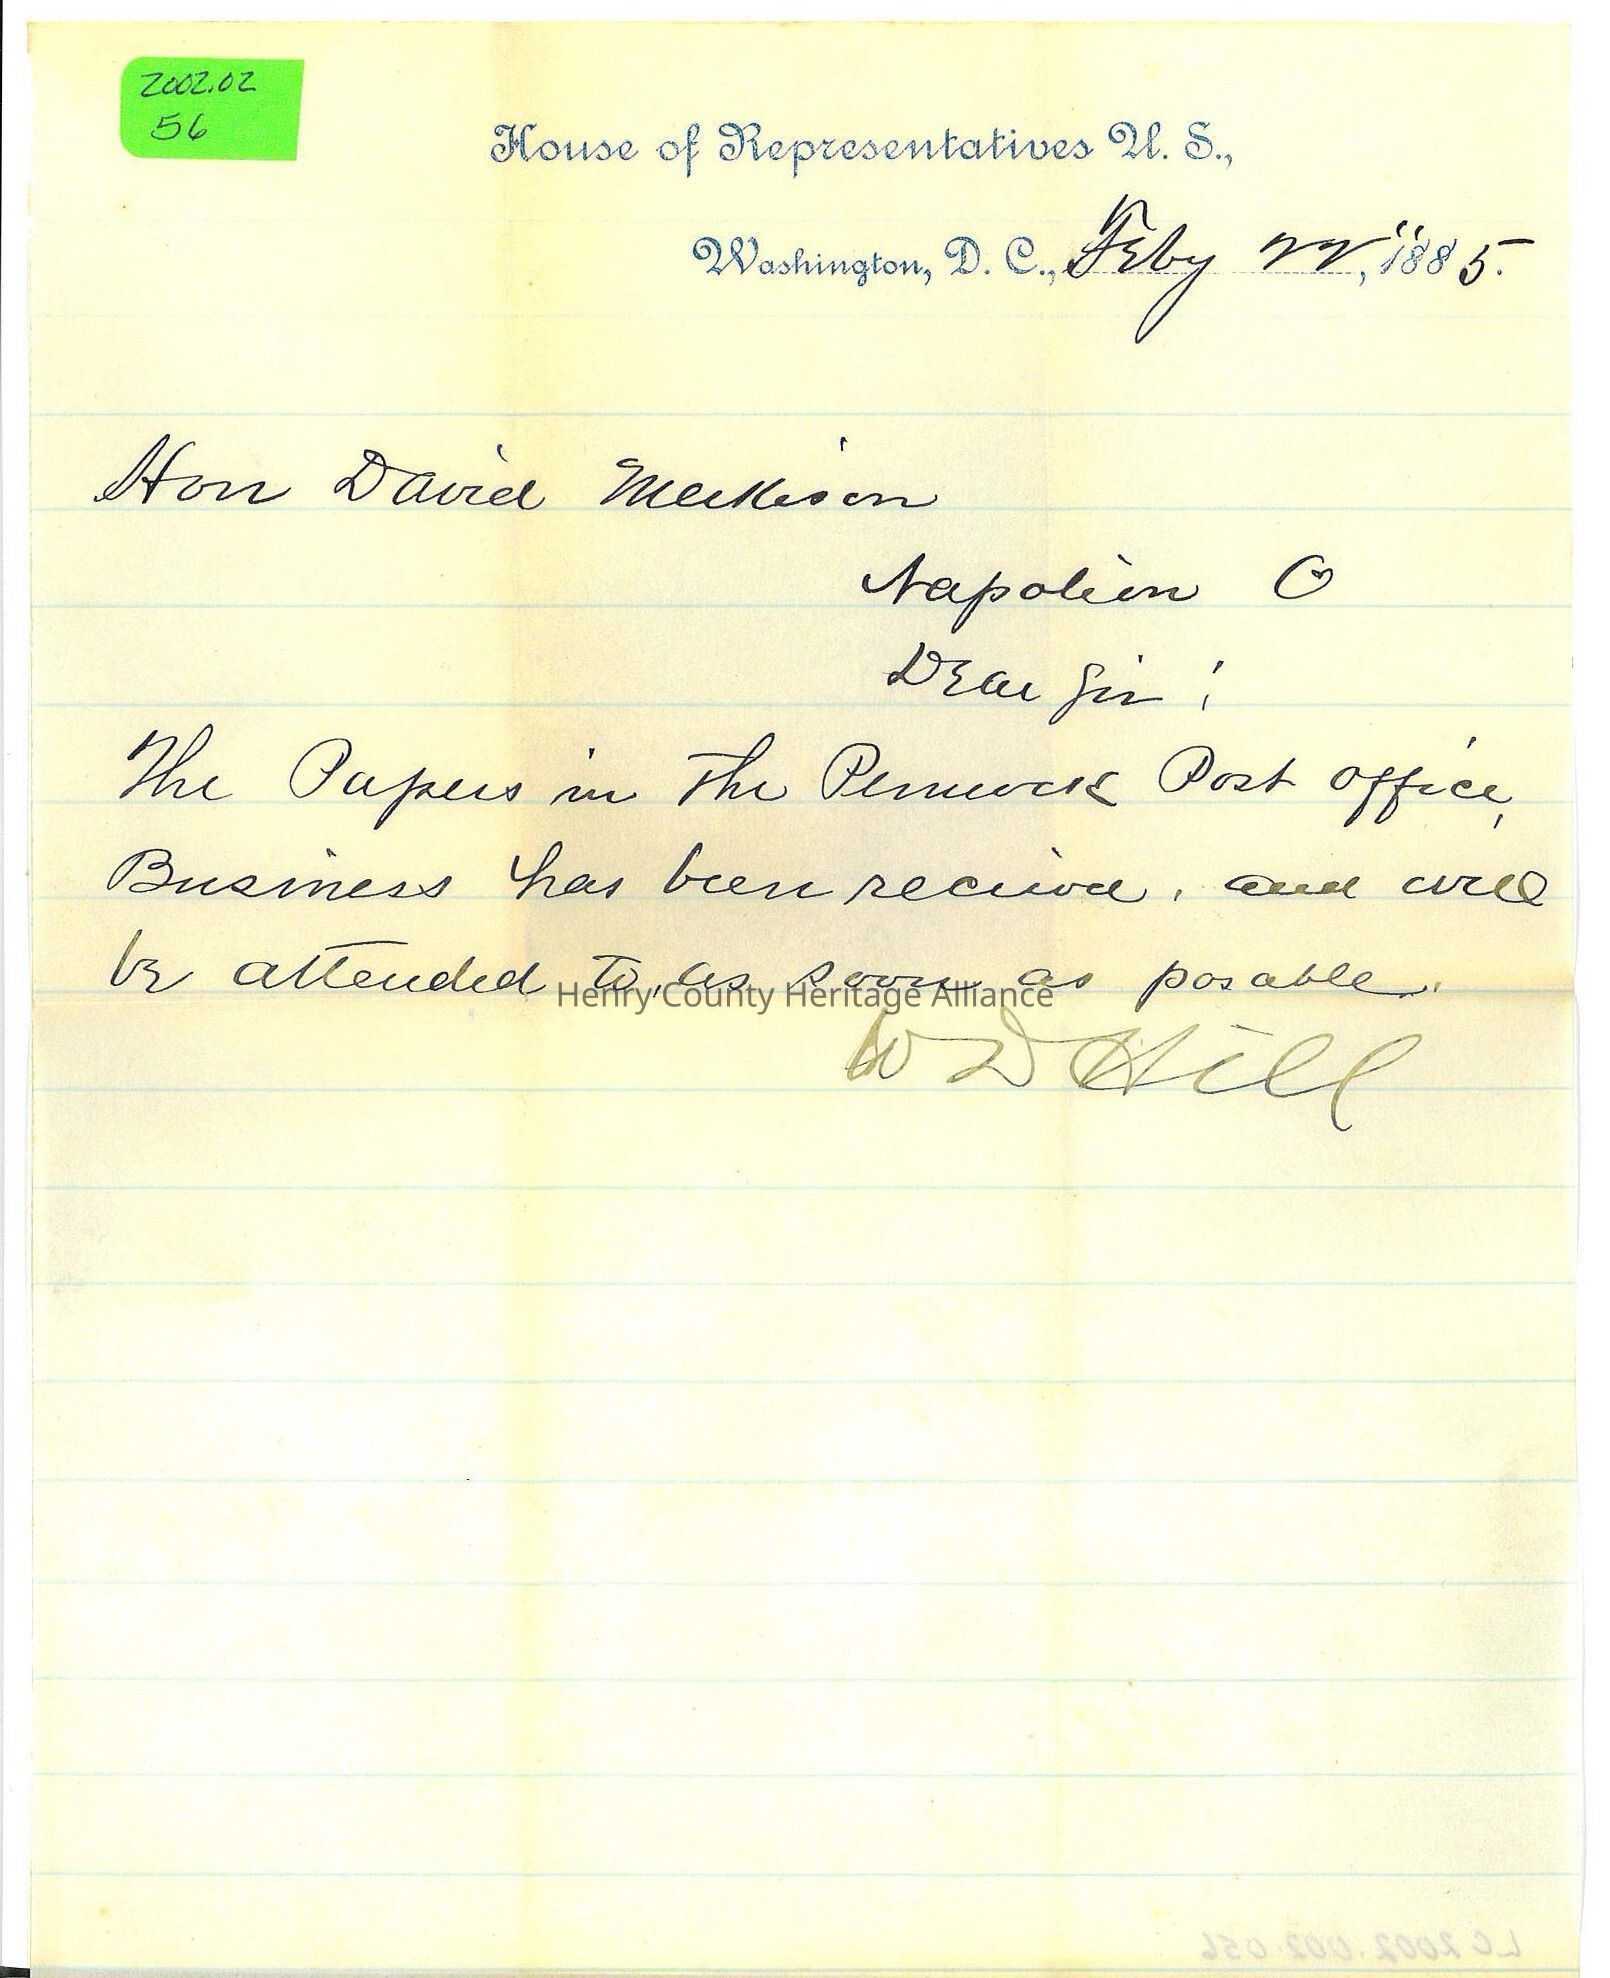 2002.02
56
House of Representatives U. S.,
Washington, D. C., Feby 22", 1885.
Hon David Meekison
Napolion O
Dear Sir!
The Papers in The Post office,
Business has been recieved, and will
be attended to, as soon as posable.
Henry County Heritage Alliance
W D Hill
LC 2002.002.056